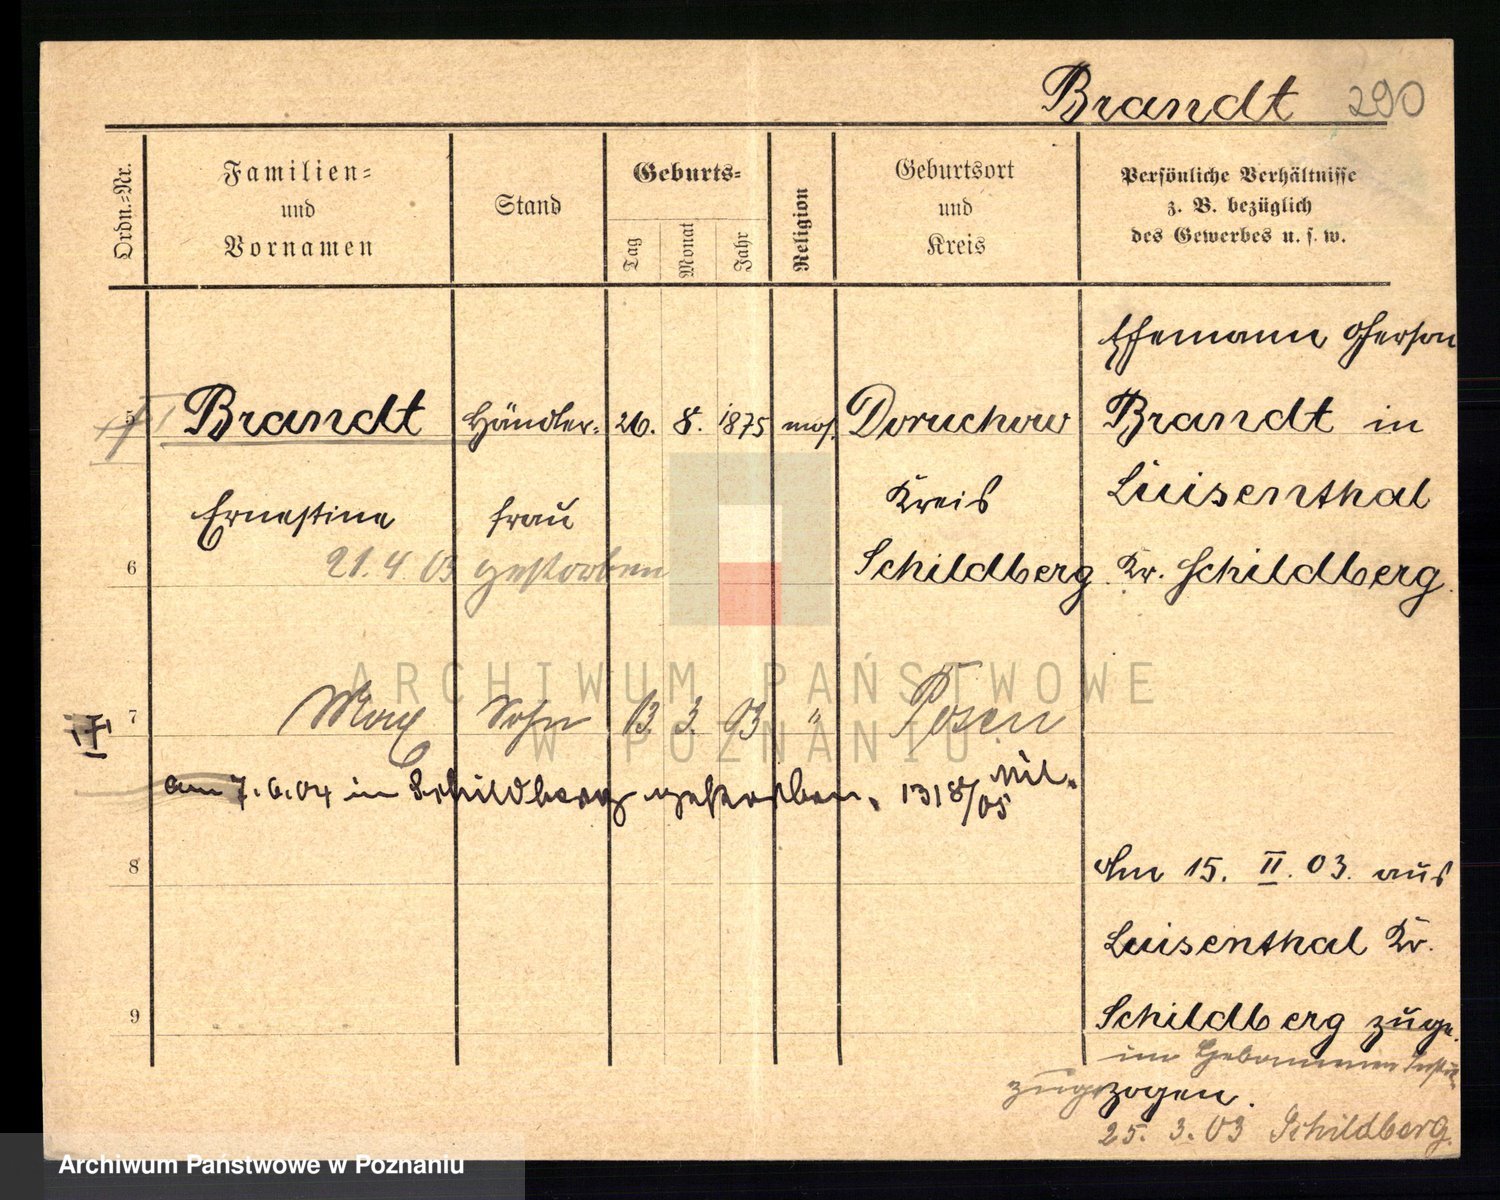 Brandt 290
Ordn.-Nr.
Familien-
und
Vornamen
Stand
Geburts-
Tag
Monat
Jahr
Religion
Geburtsort
und
Kreis
Persönliche Verhältnisse
z. B. bezüglich
des Gewerbes u. s. w.
Ehemann Gerson
5 Brandt Händler- 26. 8. 1875 mos. Doruchow Brandt in
Kreis Luisenthal
Ernestine frau
6 21.4.03 gestorben Schildberg Kr. Schildberg.
ARCHIWUM PAŃSTWOWE
W POZNANIU
7 Max Sohn 13. 3. 03 " Posen
am 7.6.04 in Schildberg gestorben. 1318/05 Mil.
8 Am 15. II. 03. aus
Luisenthal Kr.
9 Schildberg zuge-
im Hebammen
zogen.
25. 3. 03 Schildberg.
Archiwum Państwowe w Poznaniu